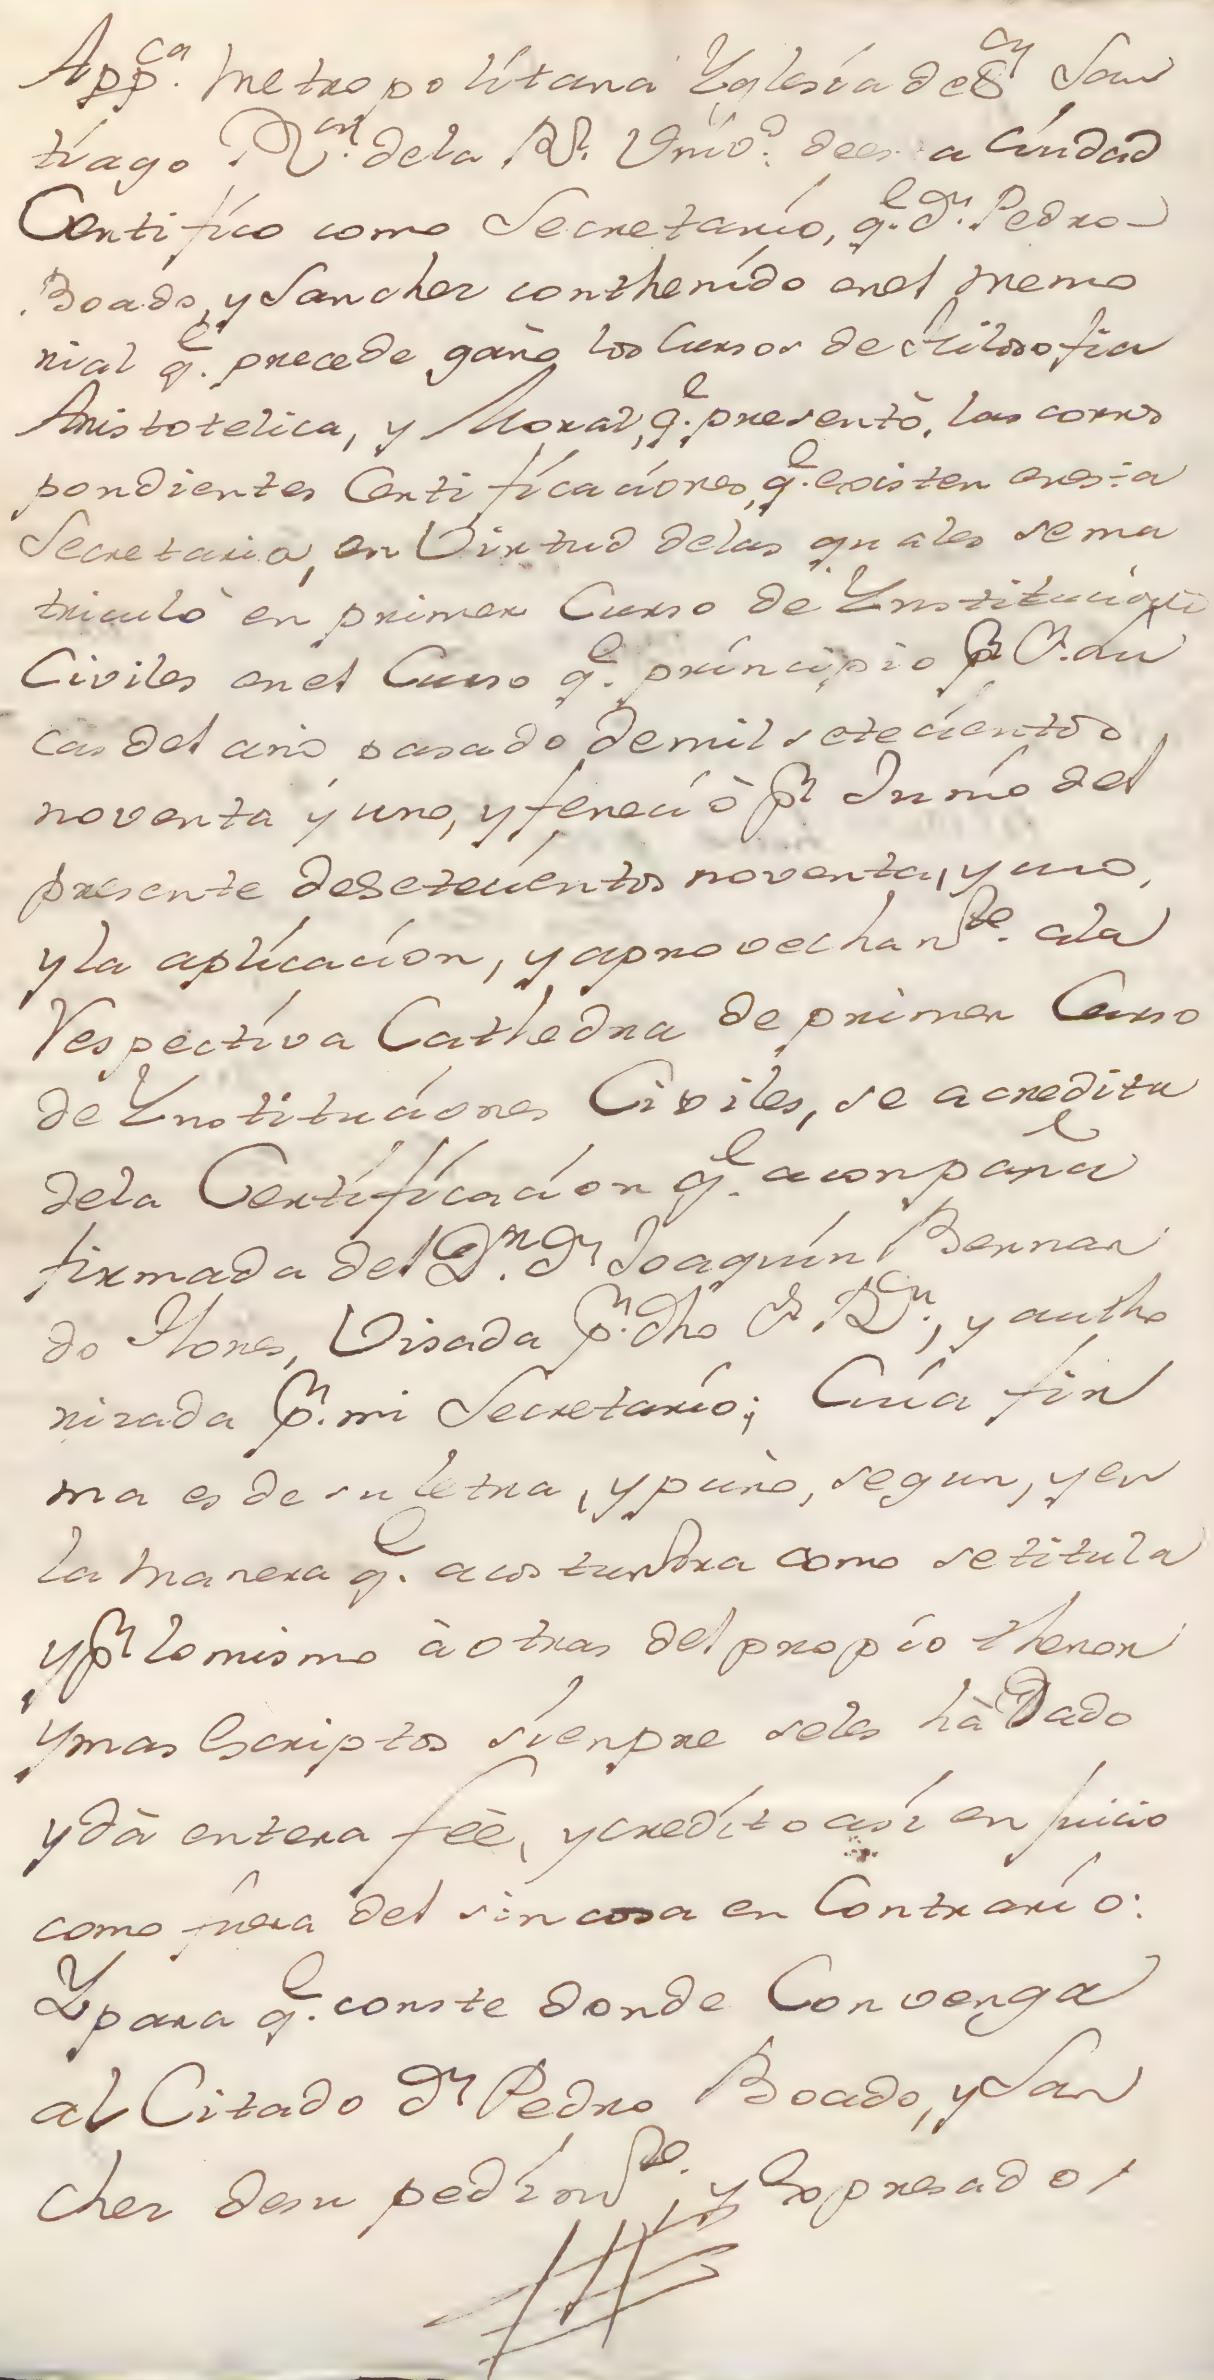 App.ca Metropolitana Yglesia de Sn San
tiago R.or de la Rl. Univd. de esta Ciudad
Certifico como Secretario, q.e dn. Pedro
Boado, y Sanchez conthenido en el memo
rial q.e precede gano los Cursos de Filosofia
Aristotelica, y Moral, q.e presentò, las corres
pondientes Certificaciones, q.e existen en esta
Secretaria, en Virtud de las quales se ma
triculò en primer Curso de Ynstituciones
Civiles en el Curso q.e principio pr Sn. Lu
cas del año pasado de mil setecientos
noventa y uno, y feneciò pr Junio del
presente de setecientos noventa, y uno,
y la aplicacion, y aprovechamto. a la
Respectiva Cathedra de primer Curso
de Ynstituciones Civiles, se acredita
de la Certificacion q.e aconpaña
firmada del Dr. dn Joaquin Bernar
do Flores, Visada pr. dho Sr Ror., y autho
rizada pr. mi Secretario; Cuia fir
ma es de su letra, y puño, segun, y en
la manera q.e acostumbra como se titula
y pr lo mismo à otras del propio thenor
y mas Escriptos sienpre se les hà Dado
y dà entera feè, y credito asi en juicio
como fuera del sin cosa en Contrario:
Y para q.e conste donde Convenga
al Citado dn Pedro Boado, y San
chez de su pedimto., y Expresado